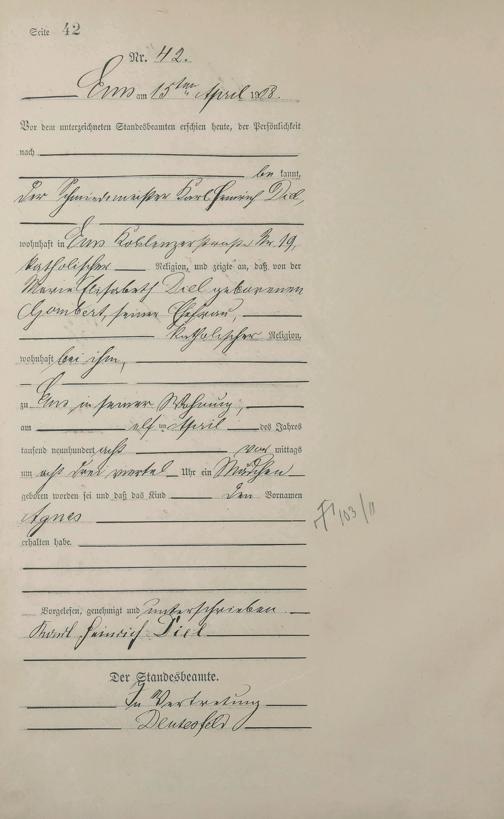 Seite 42
Nr. 42.
Ems am 15ten April 1908.
Vor dem unterzeichneten Standesbeamten erschien heute, der Persönlichkeit
nach
be kannt,
der Schmiedemeister Karl Heinrich Diel,
wohnhaft in Ems Koblenzerstraße Nr. 19,
katholischer Religion, und zeigte an, daß von der
Marie Elisabeth Diel geborenen
Gombert, seiner Ehefrau,
katholischer Religion,
wohnhaft bei ihm,
zu Ems in seiner Wohnung,
am elften April des Jahres
tausend neunhundert acht vor mittags
um acht drei viertel Uhr ein Mädchen
geboren worden sei und daß das Kind den Vornamen
Agnes
erhalten habe.
Vorgelesen, genehmigt und unterschrieben
Karl Heinrich Diel
Der Standesbeamte.
In Vertretung
103/11